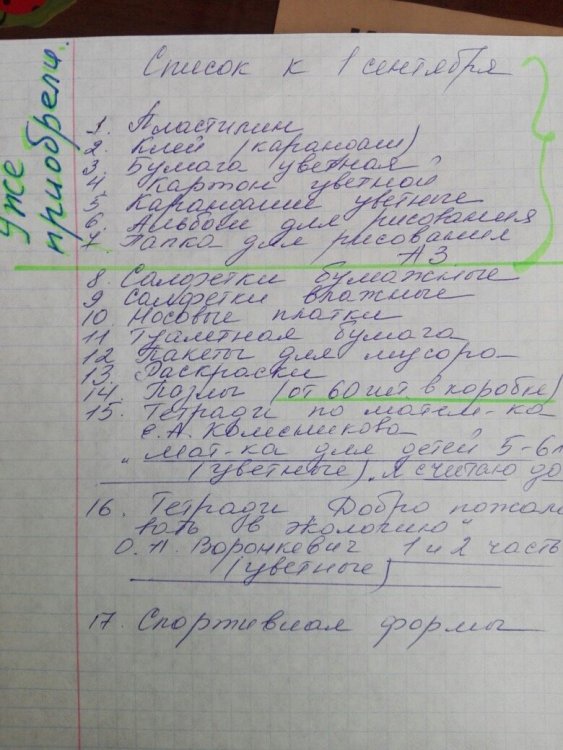 Уже приобрели.
Список к 1 сентября
1. Пластилин
2. Клей (карандаш)
3. Бумага цветная
4. Картон цветной
5. Карандаши цветные
6. Альбом для рисования
7. Папка для рисования
А3
8. Салфетки бумажные
9. Салфетки влажные
10. Носовые платки
11. Туалетная бумага
12. Пакеты для мусора
13. Раскраски
14. Пазлы (от 60 шт. в коробке)
15. Тетради по матем-ка
Е.А. Колесникова
„Мат-ка для детей 5-6л
(цветные) „Я считаю до
16. Тетради Добро пожало
вать в экологию"
О.А. Воронкевич 1 и 2 часть
(цветные)
17. Спортивная формы